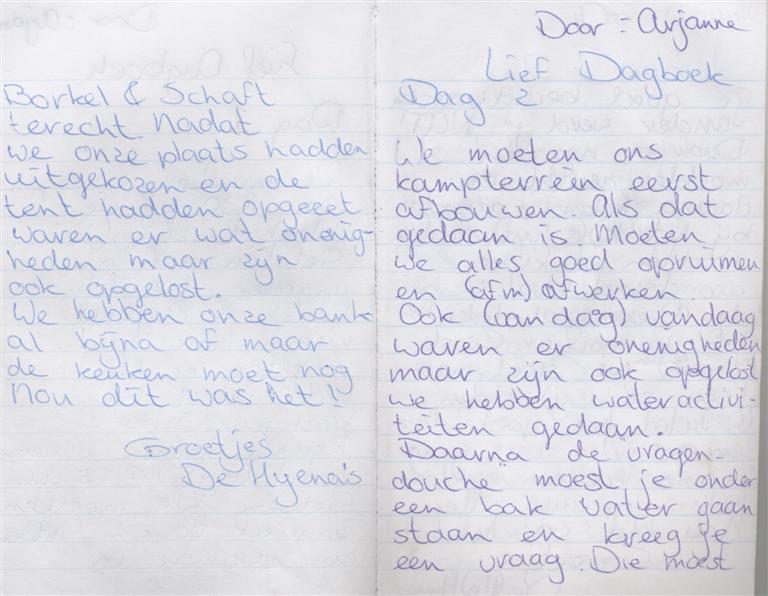 Borkel & Schaft
terecht nadat
we onze plaats hadden
uitgekozen en de
tent hadden opgezet
waren er wat onenig-
heden maar zijn
ook opgelost.
We hebben onze bank
al bijna af maar
de keuken moet nog
Nou dit was het!
Groetjes
De Hyena's
Door : Arjanne
Lief Dagboek
Dag 2
We moeten ons
kampterrein eerst
afbouwen. Als dat
gedaan is Moeten
we alles goed opruimen
en (afm) afwerken.
Ook (van dag) vandaag
waren er onenigheden
maar zijn ook opgelost
we hebben wateractivi-
teiten gedaan.
Daarna "de vragen-
douche" moest je onder
een bak water gaan
staan en kreeg je
een vraag. Die moest